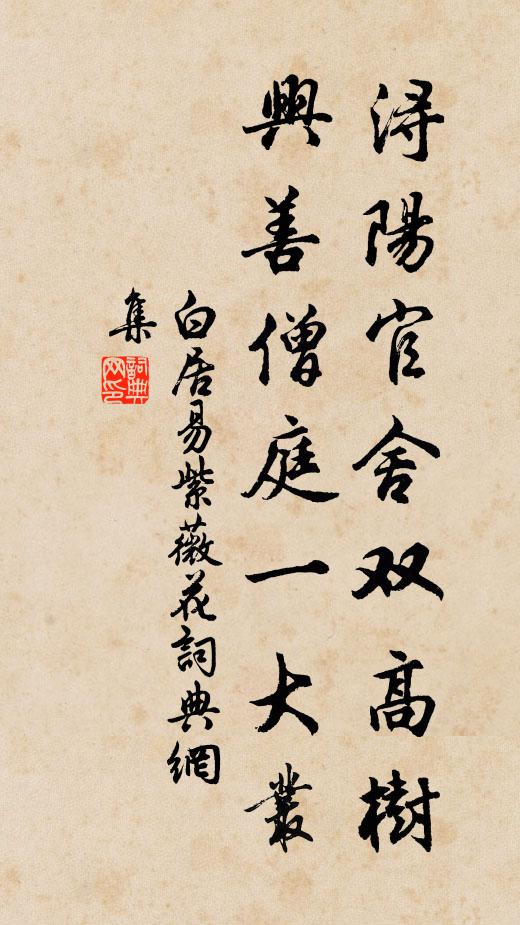 浔陽官舍双高樹
興善僧庭一大叢
白居易紫薇花詞典網
集
詞典
网印